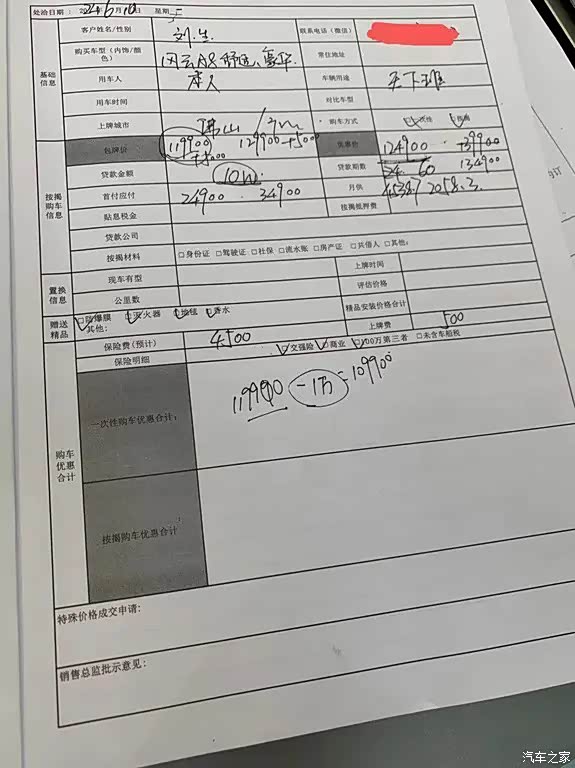 处洽日期： 2024 6月10日 星期：
客户姓名/性别 刘生 联系电话（微信）
购买车型（内饰/颜色） 风云A8 舒适、豪华 常住地址
基础信息
用车人 本人 车辆用途 上下班
用车时间 对比车型
上牌城市 佛山 购车方式
包牌价 119900 129900+5000 优惠价 124900 +39900
+5000 134900
贷款金额 10w 贷款期数 24 60
按揭购车信息
首付应付 24900 · 34900 月供 4538.7 2058.3
贴息税金 按揭抵押费
贷款公司
按揭材料 □身份证 □驾驶证 □社保 □流水账 □房产证 □共借人 □其他：
置换信息
现车有型 上牌时间
公里数 评估价格
赠送精品 □防爆膜 □灭火器 □地毯 □香水 精品安装价格合计
其他：
保险费（预计） 4500 上牌费 500
保险明细 □交强险 □商业 □100万第三者 □未含车船税
119900 -1万=109900
一次性购车优惠合计：
购车优惠合计
按揭购车优惠合计
特殊价格成交申请：
销售总监批示意见：
汽车之家